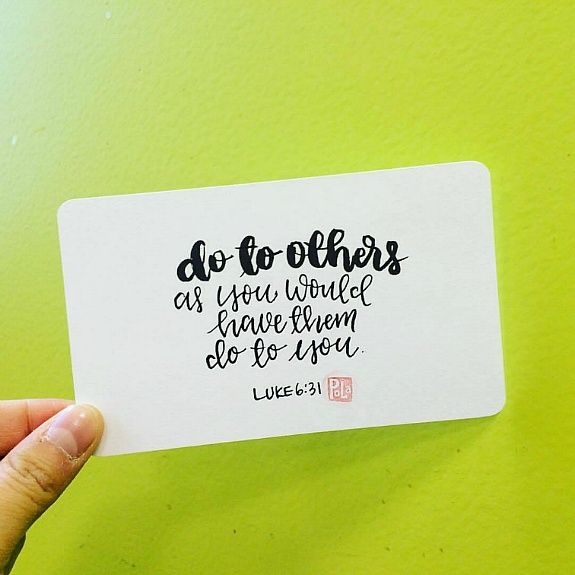 do to others
as you would
have them
do to you.
LUKE 6:31 POLA